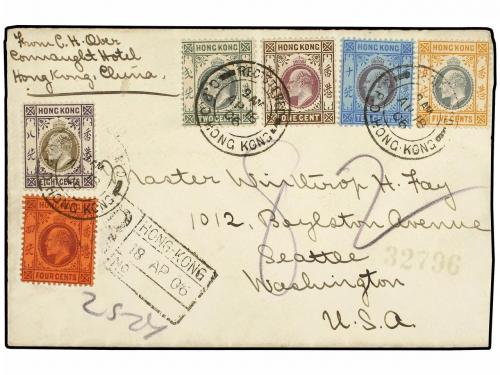 From C. H. Ober
Connaught Hotel
Hong Kong, China
HONG KONG
HONG KONG
ONE CENT
HONG KONG
HONG KONG
FIVE CENTS
HONG KONG
HONG KONG
HONG KONG
EIGHT CENTS
HONG KONG
HONG KONG
FOUR CENTS
HONG-KONG
18 AP 06
Master Winthrop H. Fay
1012, Boylston Avenue
Seattle
Washington
U.S.A.
82
32796
25-24